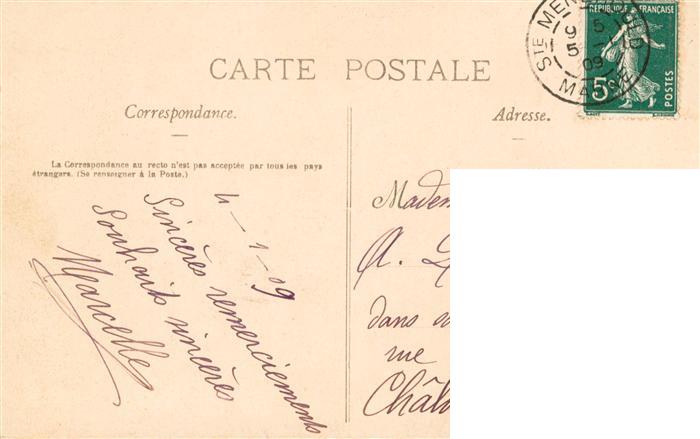 STE MEN
9 5
5 - 1
09
MARNE
REPUBLIQUE FRANÇAISE
5c
POSTES
CARTE POSTALE
Correspondance.
Adresse.
La Correspondance au recto n'est pas acceptée par tous les pays
étrangers. (Se renseigner à la Poste.)
4 - 1 - 09
Sincères remerciements
Souhaits sincères
Marcelle
Madem
A.
dans
rue
Châl